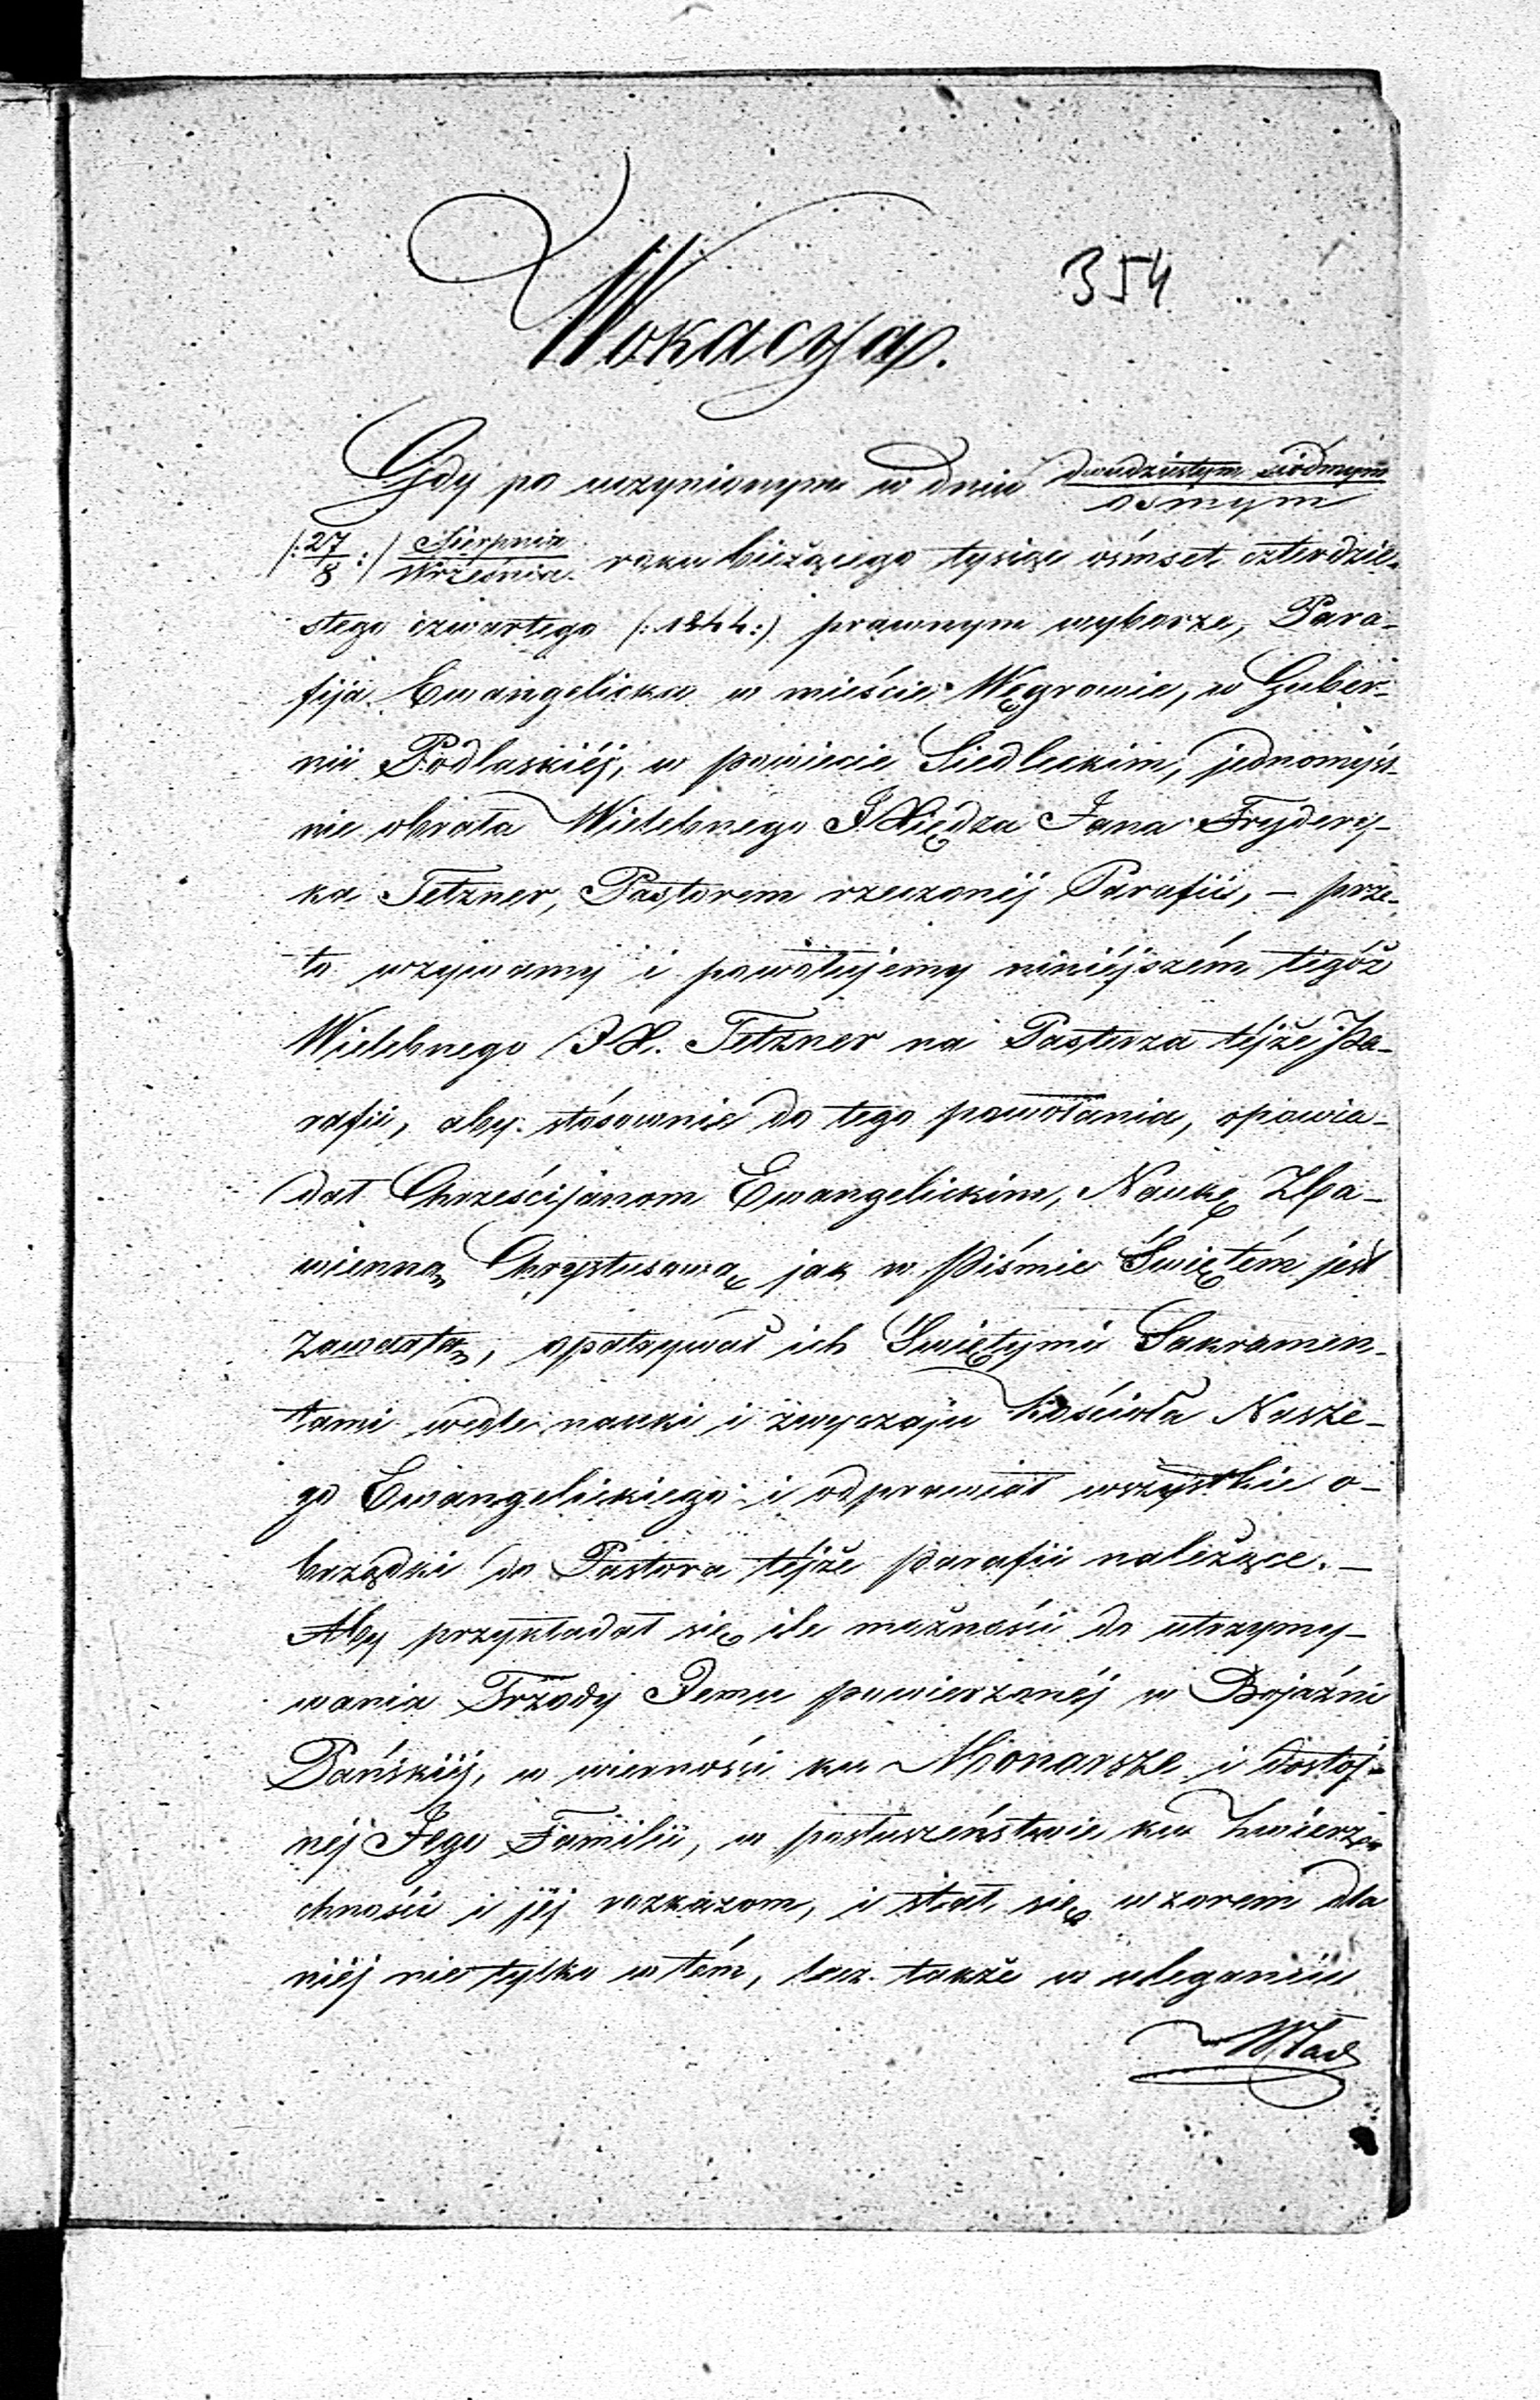 354
Wokacya.
Gdy po uczynionym w dniu dwudziestym siódmym / osmym
/: 27/8 :/ Sierpnia / Września roku bieżącego tysiąc ośmset czterdzie-
stego czwartego (: 1844 :) prawnym wyborze, Para-
fija Ewangelicka w mieście Węgrowie, w Guber-
nii Podlaskiéj, w powiecie Siedleckim, jednomyśl-
nie obrała Wielebnego JXiędza Jana Frydery-
ka Tetzner, Pastorem rzeczonéj Parafii, – prze-
to wzywamy i powołujemy niniéjszém tegóż
Wielebnego JX. Tetzner na Pasterza téjże Pa-
rafii, aby stósownie do tego powołania, opowia-
dał Chrześcijanom Ewangelickim, Naukę Zba-
wienną Chrystusową jak w Piśmie Świętém jest
zawartą, opatrywał ich Świętymi Sakramen-
tami wedle nauki i zwyczaju Kościoła Nasze-
go Ewangelickiego i odprawiał wszystkie o-
brządki do Pastora téjże parafii należące. –
Aby przykładał się ile możności do utrzymy-
wania Trzody Jemu powierzonéj w Bojaźni
Pańskiéj, w wierności ku Monarsze i dostoj-
néj Jego Familii, w posłuszeństwie ku Zwierz-
chności i jéj rozkazom, i stał się wzorem dla
niéj nie tylko w tém, lecz także w uleganiu
Wład